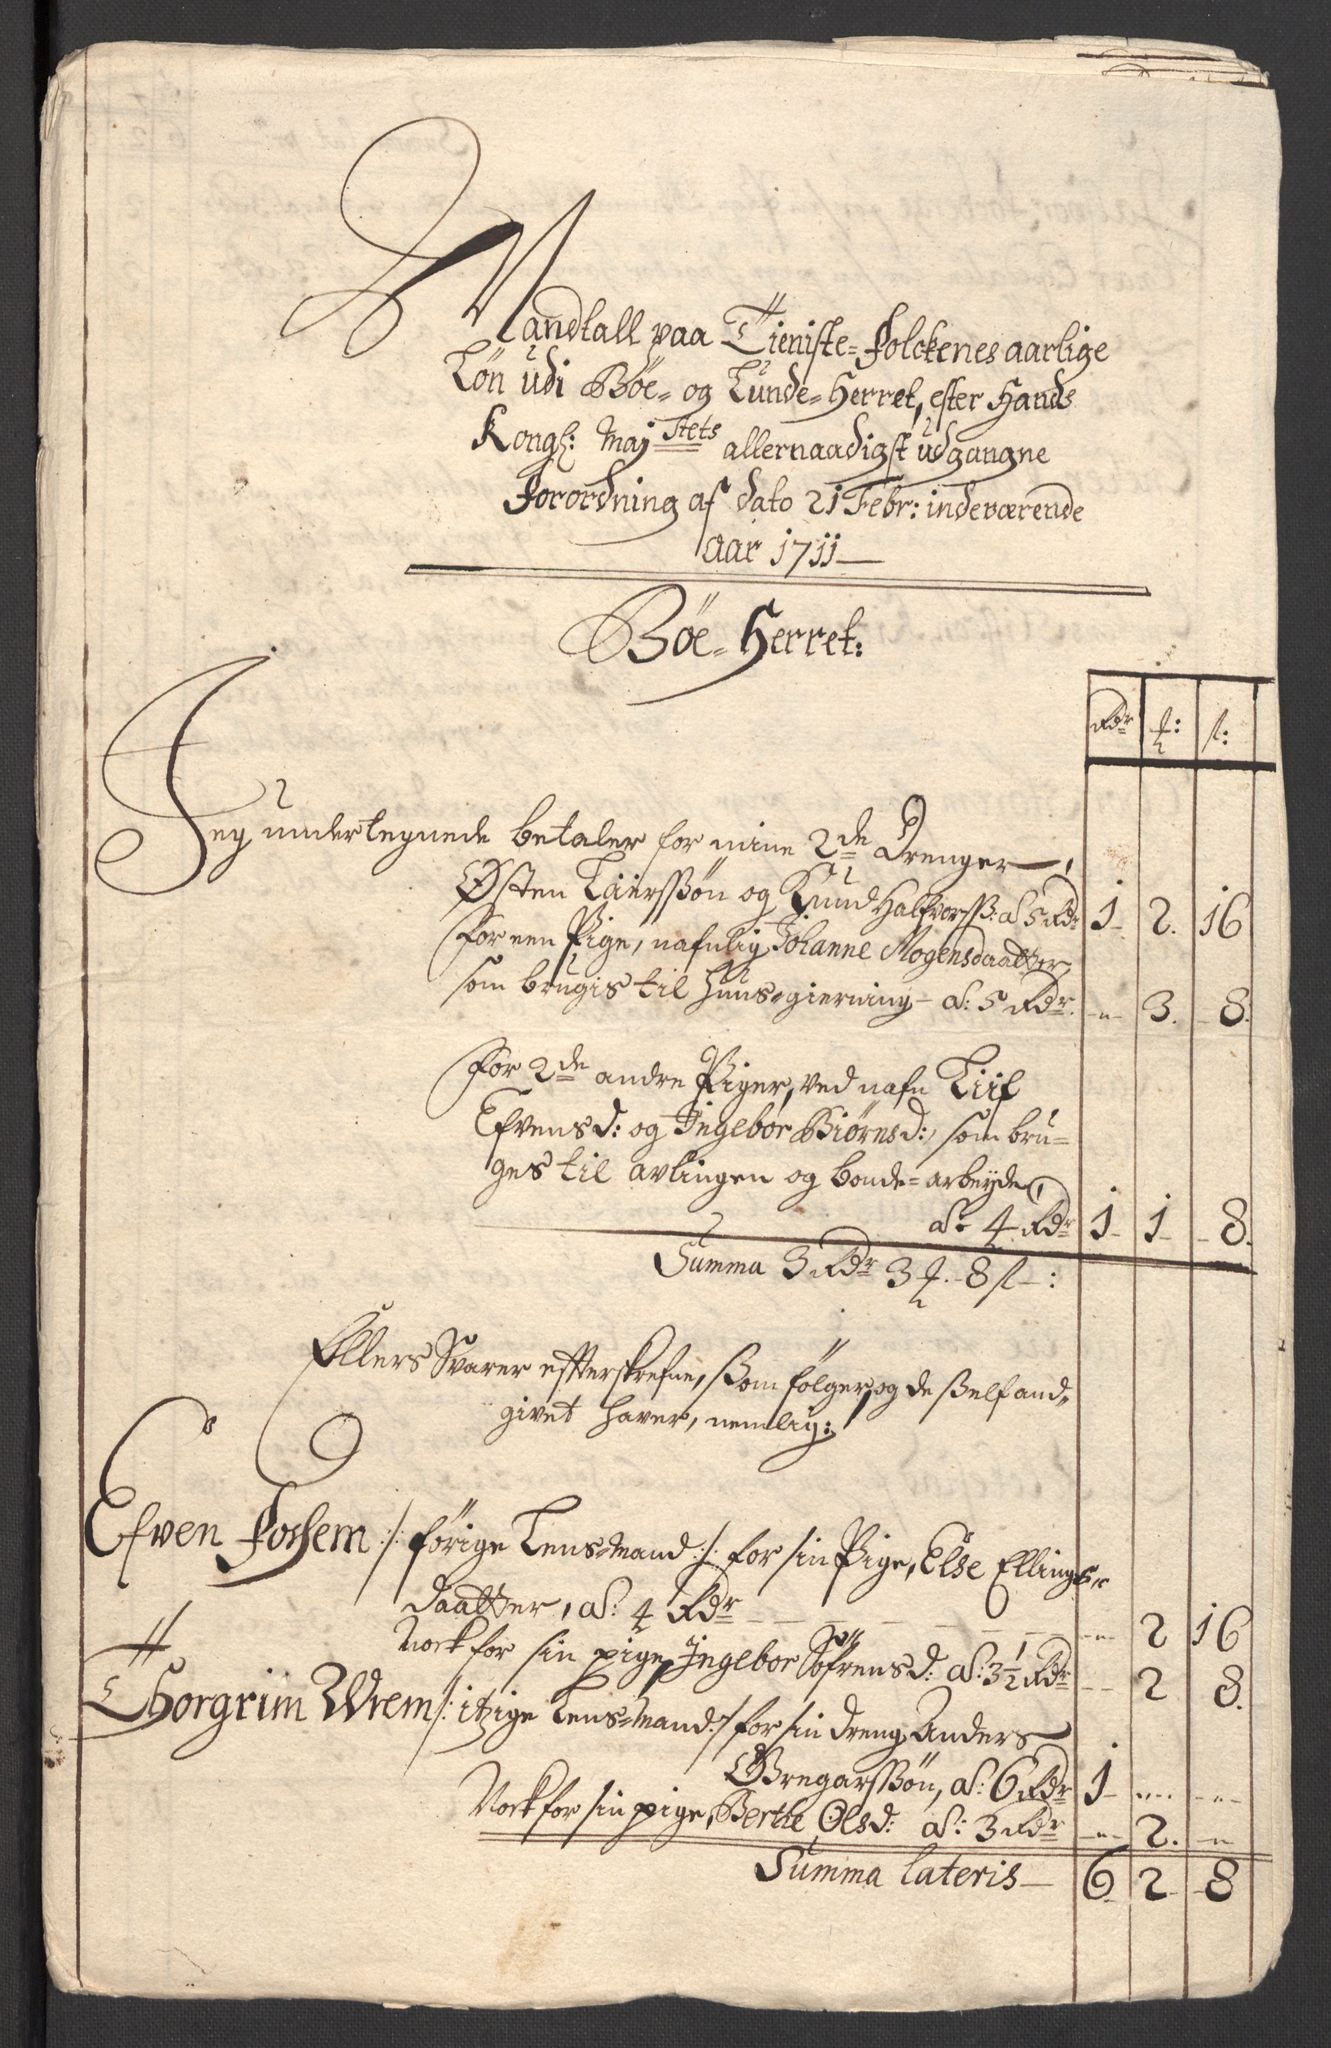 Mandtall paa Tieniste-Folckenes aarlige
Løn udi Bøe- og Lunde-Herret, efter Hands
Kongl: Maj:stets allernaadigst udgangne
Forordning af dato 21 Febr: indeværende
aar 1711
Bøe-Herret:
Rdr | ƶ: | s:
Jeg undertegnede betaler for mine 2de Drenger,
Østen Taierssøn og Knud Halfverss: a 5 Rdr | 1 | 2. | 16
For een Pige, nafnlig Johanne Mogensdaatter,
som brugis til Huus-gierning a: 5 Rdr. | -"- | 3. | 8.
For 2de andre Piger, ved nafn Liif
Efvensd: og Ingebor Biørnsd:, som bru-
ges til avlingen og bonde-arbeyde,
a: 4 Rdr | 1 | 1 | 8.
Summa 3 Rdr 3 ƶ. 8 s:
Ellers Svarer effterskrefne, ssom følger, og de sself and-
givet haver, nemlig:
Efven Folsem /: førige Lens-Mand :/ for sin Pige, Else Ellings-
daatter, a: 4 Rdr | -"- | 2 | 16
Nock for sin pige, Ingebor Søfrensd: a: 3½ Rdr | -- | 2 | 8.
Thorgrim Wrem /: itzige Lens-Mand :/ for sin dreng Anders
Gregarssøn, a: 6 Rdr | 1 | -"- | -"-
Nock for sin pige, Berthe Olsd: a: 3 Rdr | -"- | 2. | -"-
Summa lateris | 6 | 2 | 8